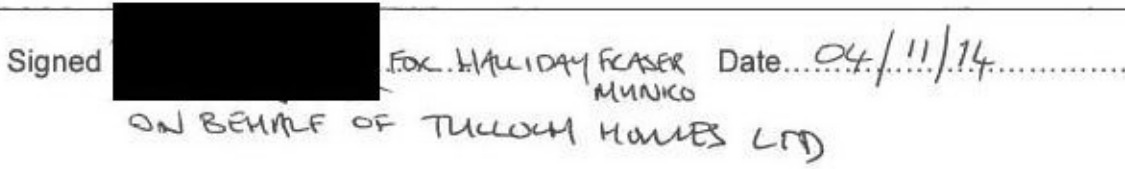 Signed FOR HALLIDAY FRASER Date....04/11/14................
MUNRO
ON BEHALF OF TULLOCH HOMES LTD